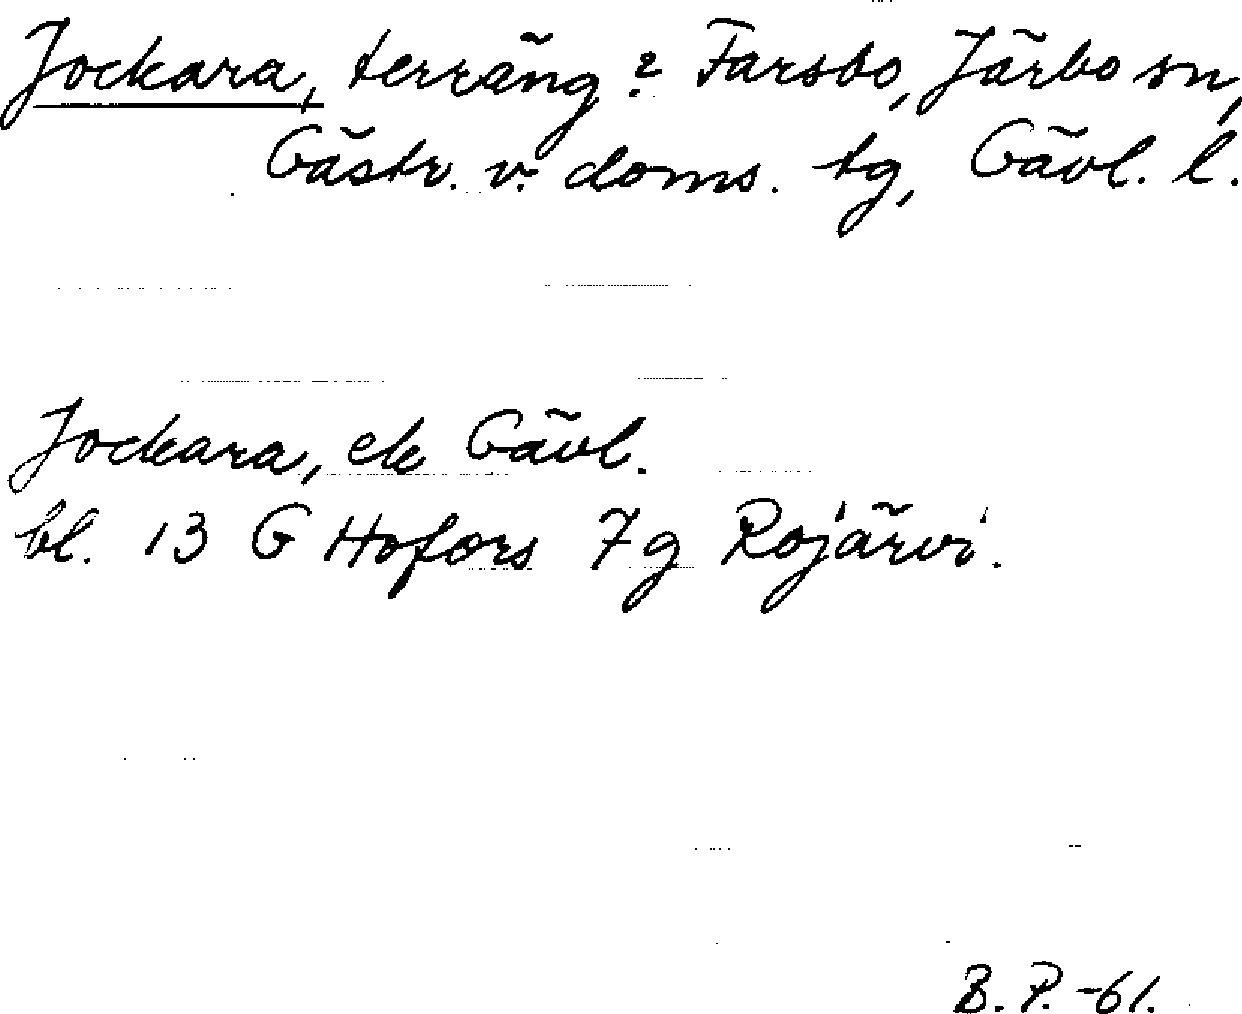 Jockara, terräng? Farsbo, Järbo sn,
Gästr. v. doms. tg, Gävl. l.
Jockara, ek Gävl.
bl. 13 G Hofors 7g Rojärvi.
B. P. -61.